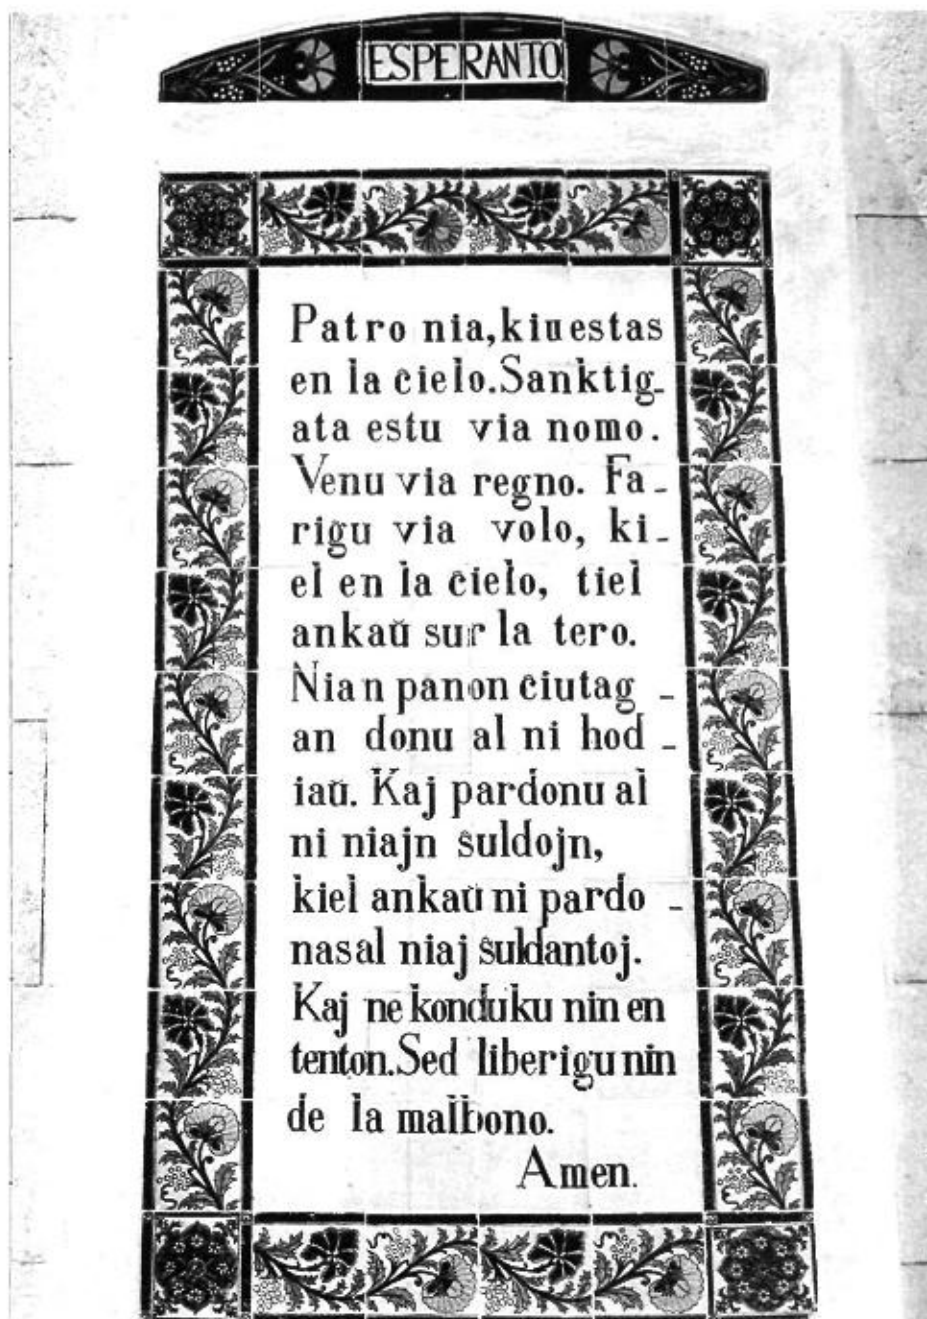 ESPERANTO
Patro nia, kiu estas
en la ĉielo. Sanktig-
ata estu via nomo.
Venu via regno. Fa-
riĝu via volo, ki-
el en la ĉielo, tiel
ankaŭ sur la tero.
Nian panon ĉiutag-
an donu al ni hod-
iaŭ. Kaj pardonu al
ni niajn ŝuldojn,
kiel ankaŭ ni pardo-
nas al niaj ŝuldantoj.
Kaj ne konduku nin en
tenton. Sed liberigu nin
de la malbono.
Amen.